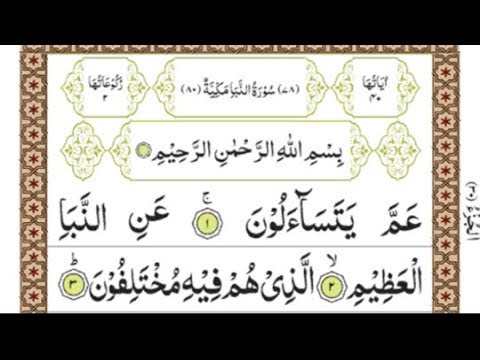 اٰيَاتُهَا ٤٠
(٧٨) سُوْرَةُ النَّبَاِ مَكِّيَّةٌ (٨٠)
رُكُوْعَاتُهَا ٢
بِسْمِ اللّٰهِ الرَّحْمٰنِ الرَّحِيْمِ
عَمَّ يَتَسَآءَلُوْنَ ۚ ١ عَنِ النَّبَاِ
الْعَظِيْمِ ۙ ٢ الَّذِىْ هُمْ فِيْهِ مُخْتَلِفُوْنَ ؕ ٣
اَلْجُزْءُ (٣٠)